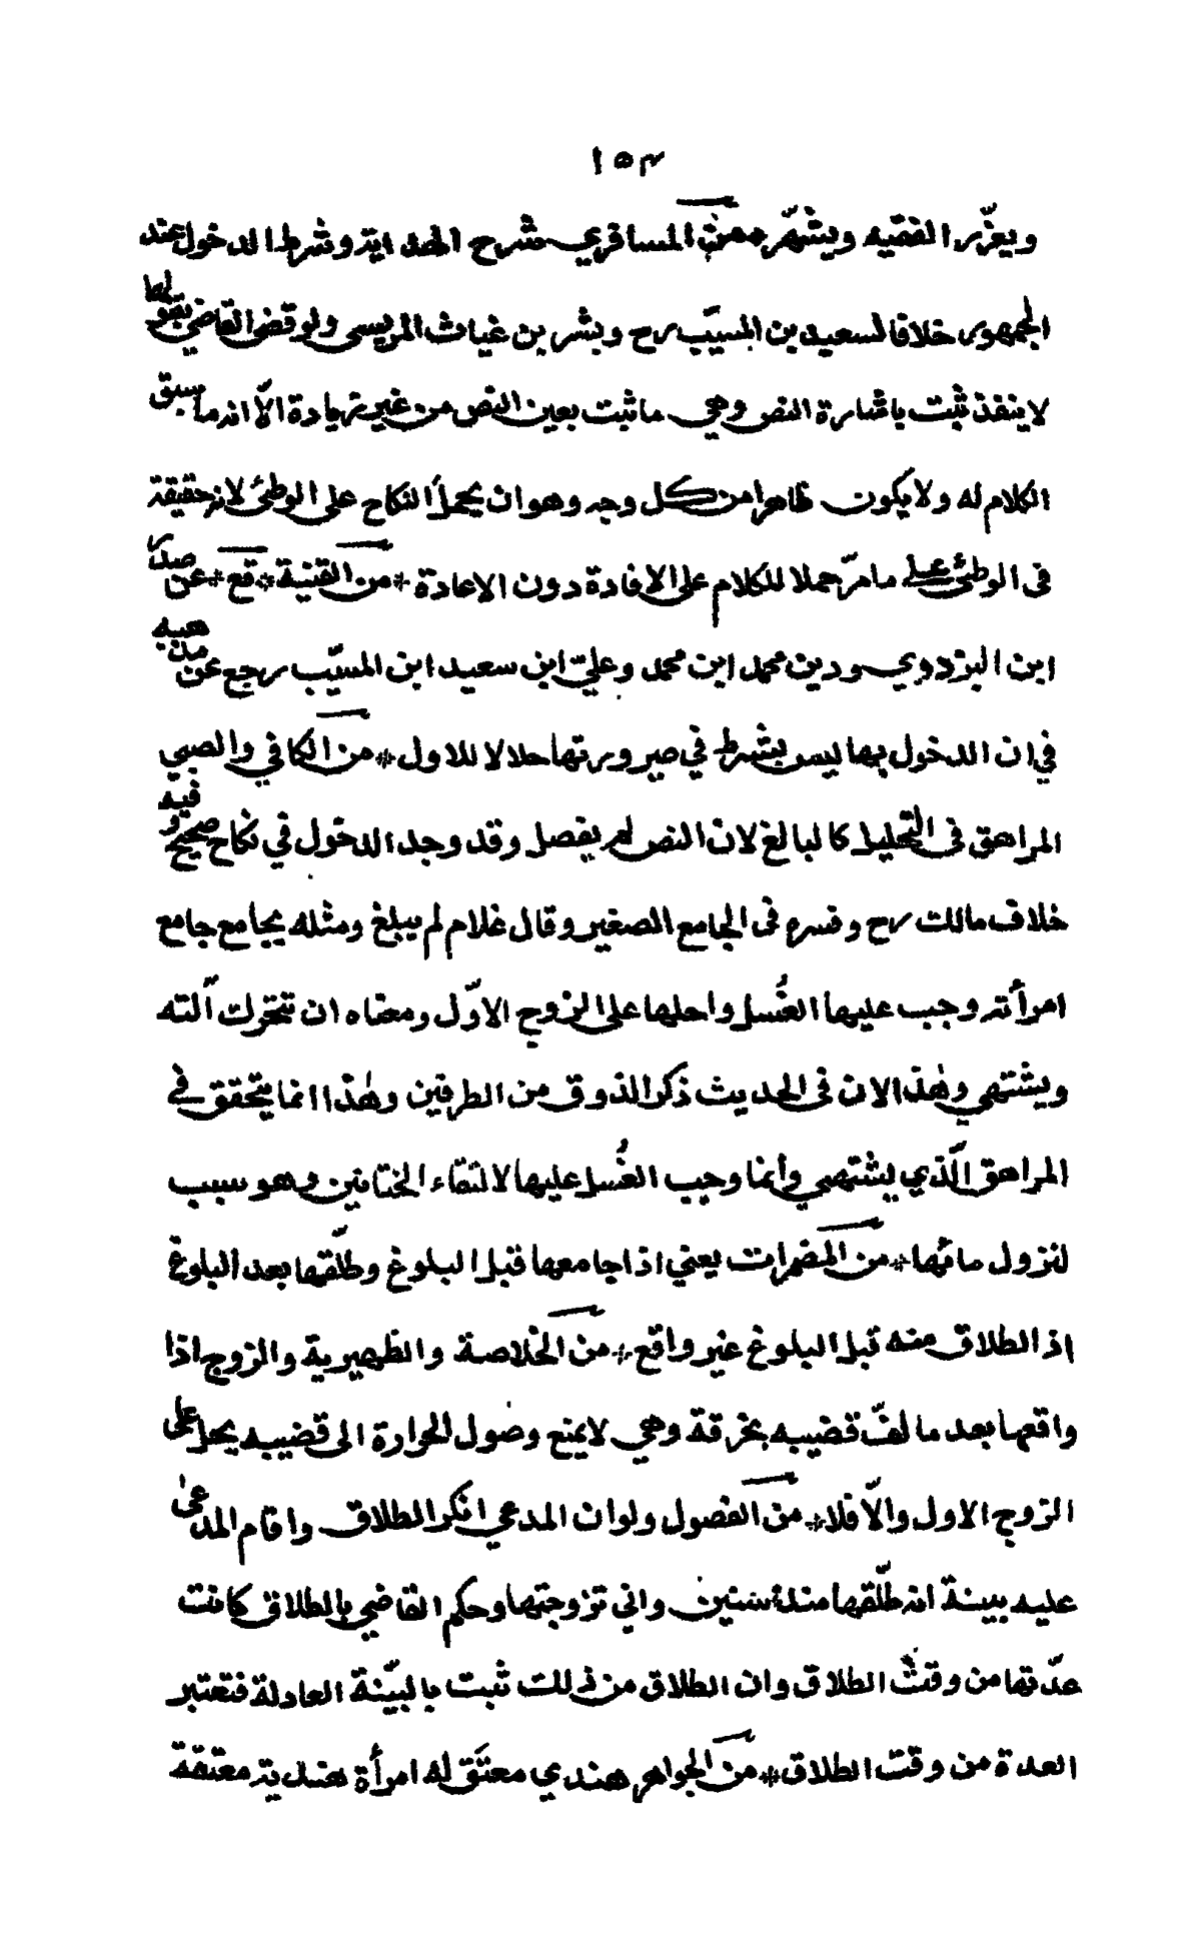 ١٥٣
ويعزّر الفقيه ويشهّر من المسافري شرح الهداية وشرط الدخول عند
الجمهور خلافا لسعيد بن المسيّب رح وبشر بن غياث المريسي ولو قضى القاضي بقولهما
لا ينفذ ثبت باشارة النص وهي ما ثبت بعين النص من غير زيادة الّا انه ما سبق
الكلام له ولا يكون ظاهرا من كل وجه وهو ان يحمل النكاح على الوطئ لانه حقيقة
فى الوطئ على ما مرّ حملا للكلام على الافادة دون الاعادة * من القنية * قع * عن صدر
ابن البزدوي ودين محمد ابن محمد وعليّ ابن سعيد ابن المسيّب رجع عن مذهبه
في ان الدخول بها ليس بشرط في صيرورتها حلالا للاول * من الكافي والصبي
المراهق فى التحليل كالبالغ لان النص لم يفصل وقد وجد الدخول في نكاح صحيح وفيه
خلاف مالك رح وفسره فى الجامع الصغير وقال غلام لم يبلغ ومثله يجامع جامع
امرأته وجب عليها الغُسل واحلها على الزوج الاوّل ومعناه ان تتحرك آلته
ويشتهي وهذا لان فى الحديث ذكر الذوق من الطرفين وهذا انما يتحقق في
المراهق الّذي يشتهي وأنما وجب الغُسل عليها لالتقاء الختانين وهو سبب
لنزول مائها * من المضمرات يعني اذا جامعها قبل البلوغ وطلّقها بعد البلوغ
اذ الطلاق منه قبل البلوغ غير واقع * من الخلاصة والظهيرية والزوج اذا
واقعها بعد ما لفّ قضيبه بخرقة وهي لا يمنع وصول الحرارة الى قضيبه يحل على
الزوج الاول والّا فلا * من الفصول ولو ان المدعي انكر الطلاق واقام المدعى
عليه بينة انه طلّقها منذ سنين واني تزوجتها وحكم القاضي بالطلاق كانت
عدّتها من وقت الطلاق وان الطلاق من ذلك ثبت بالبيّنة العادلة فتعتبر
العدة من وقت الطلاق * من الجواهر هندي معتَق له امرأة هندية معتقة